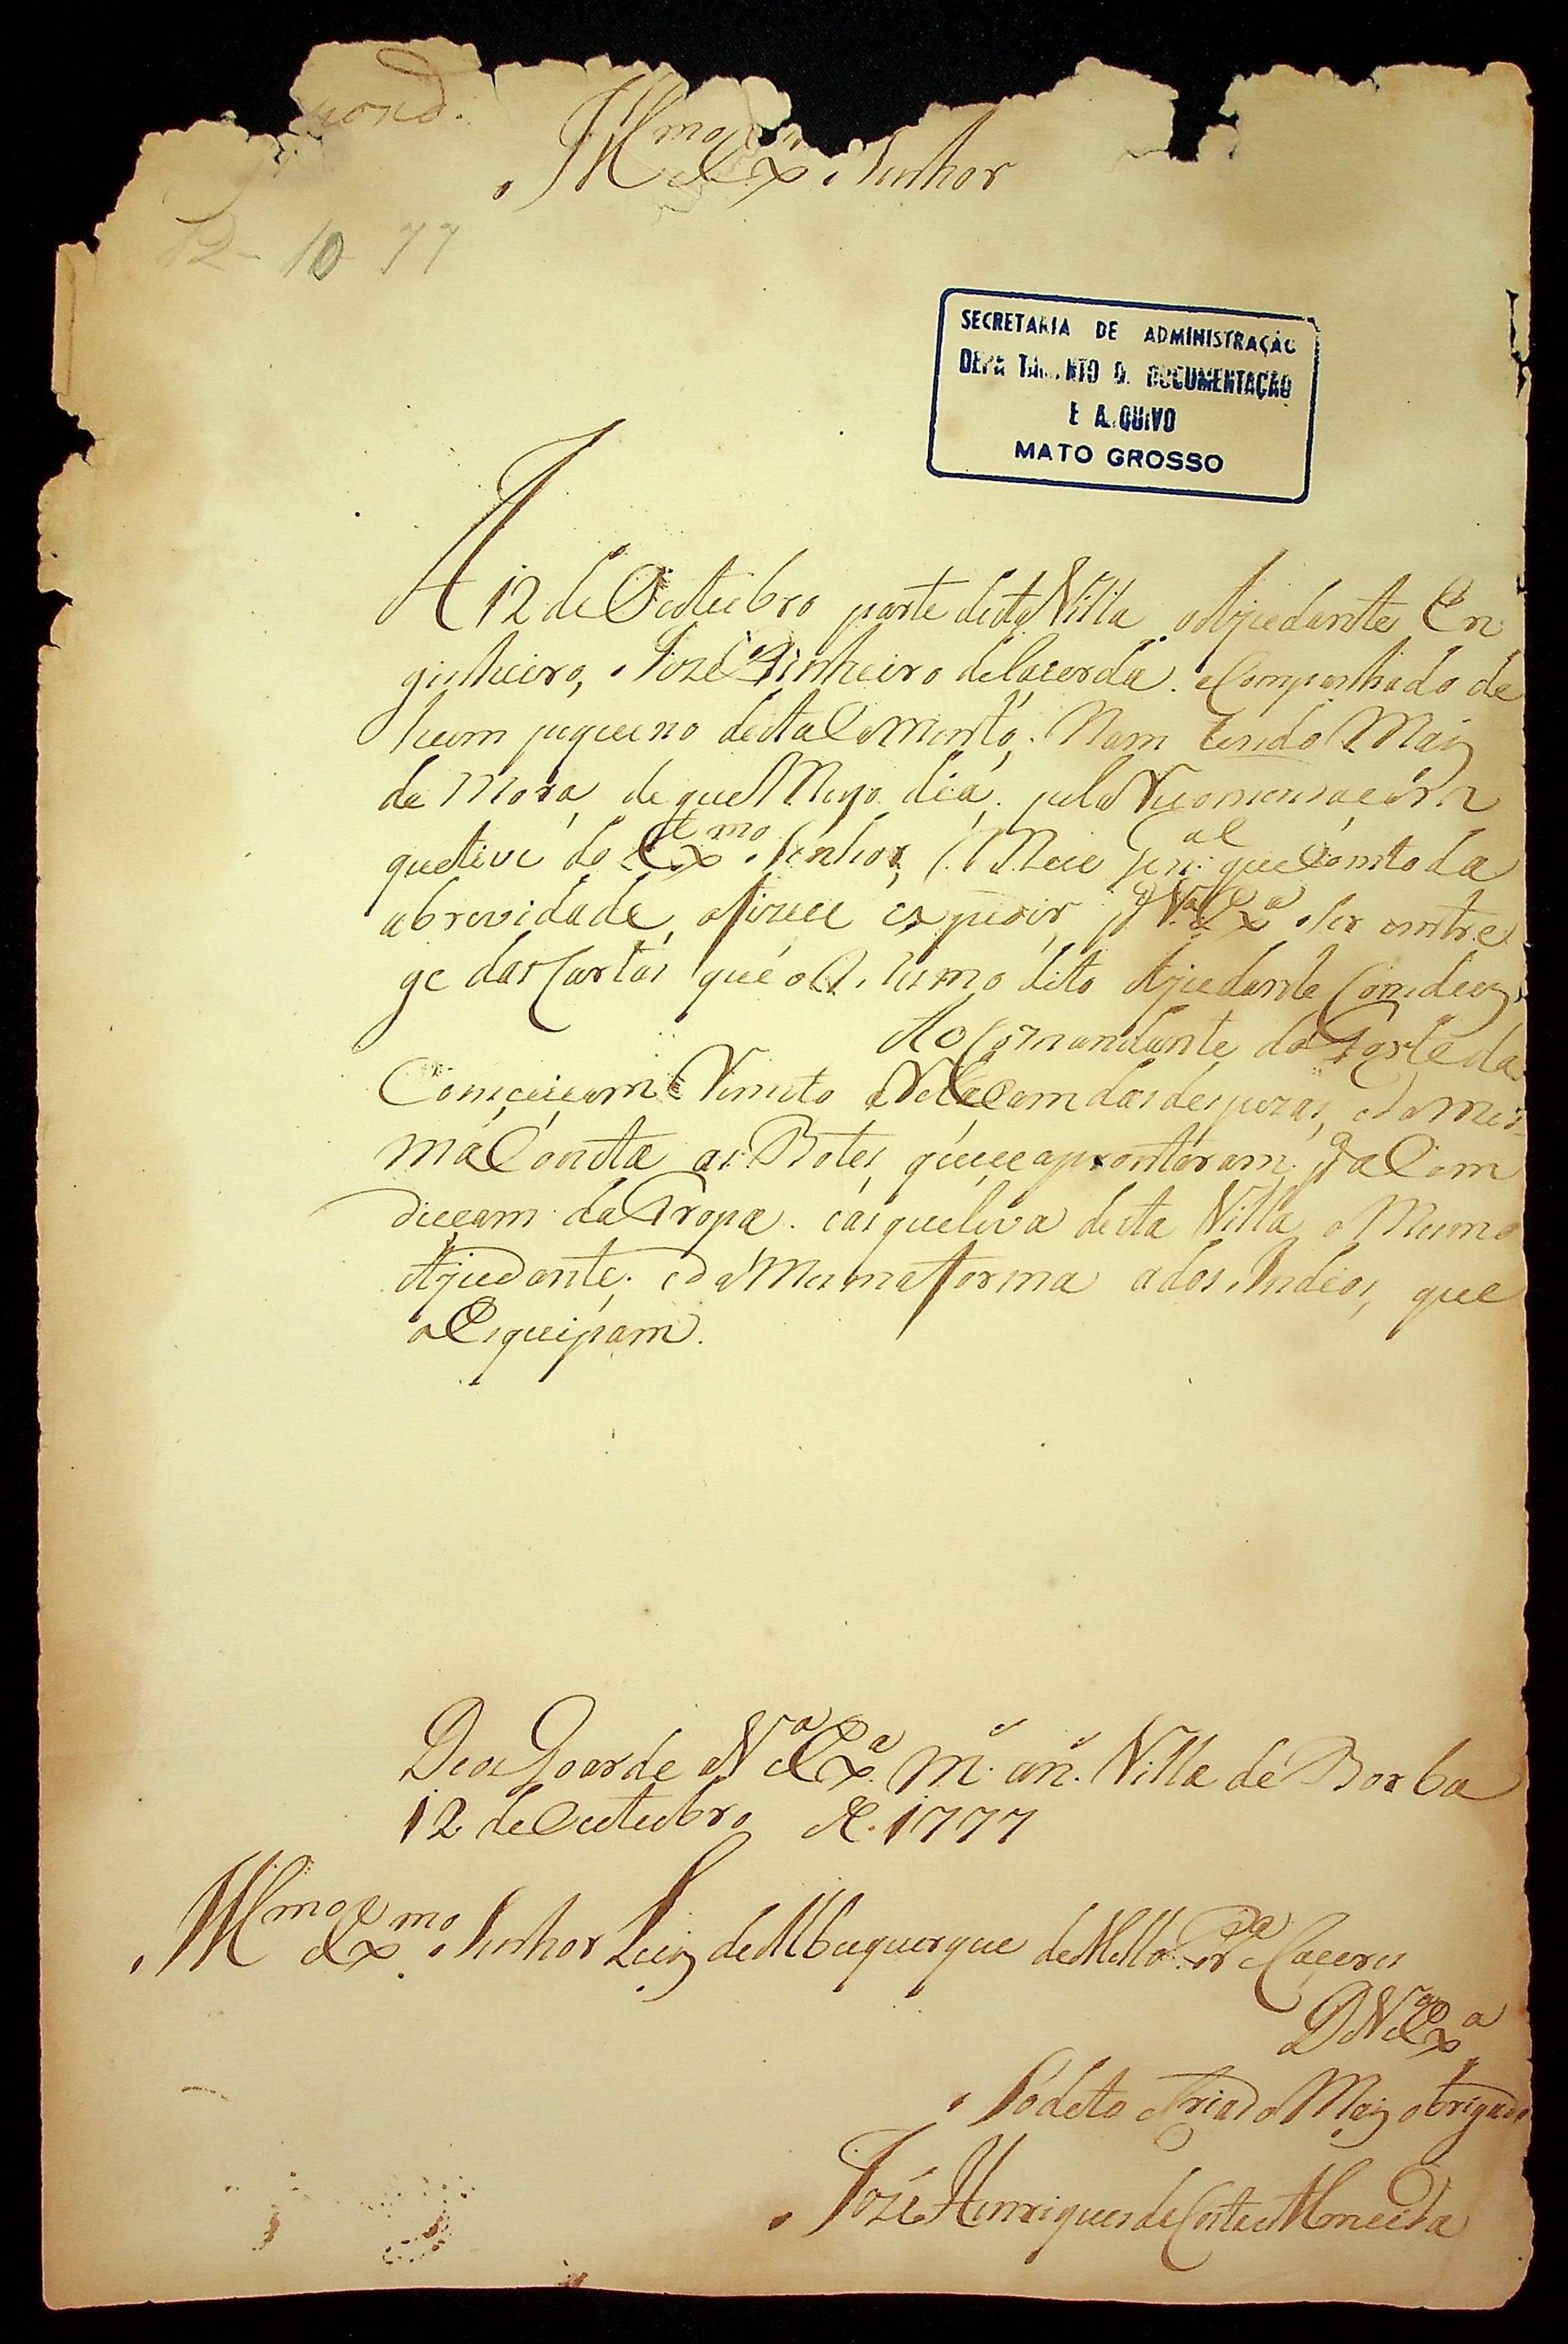 Ill.mo e Ex. Senhor
12 - 10 77
SECRETARIA DE ADMINISTRAÇÃO
DEPARTAMENTO D. DOCUMENTAÇÃO
E ARQUIVO
MATO GROSSO
A 12 de Outubro parte desta Villa o Ajudante En
ginheiro, Jozé Pinheiro de Lacerda. aCompanhado de
huum piqueno destaCamento; Nam tendo Maiz
de Mora, de que Meyo dia; pela Recomendaçam
que tive do Ex.mo Senhor, Meu Gen.al que Com toda
a brevidade, o fizece expedir p.a V.a Ex.a Ser entre
ge das Cartas que o Mesmo dito Ajudante Conduz;
Ao Comandante da Forte da
Conceiçam Remeto a Relaçam das despezas, e da mes-
ma Conta os Botes, que ce aprontaram p.a a Com
duçam da Tropa. e as que leva desta Villa o Mesmo
Ajudante; e da Mesma forma a dos Indios, que
o Esquipam.
Deos Goarde a V.a Ex.a m.s an.s Villa de Borba
12 de Outubro de 1777
Ill.mo e Ex.mo Senhor Luiz de Albuquerque de Mello Per.a e Caceres
D V.a Ex.a
Sudeto e Criado Maiz obrigado
Jozé Henriques da Costa e Almeida